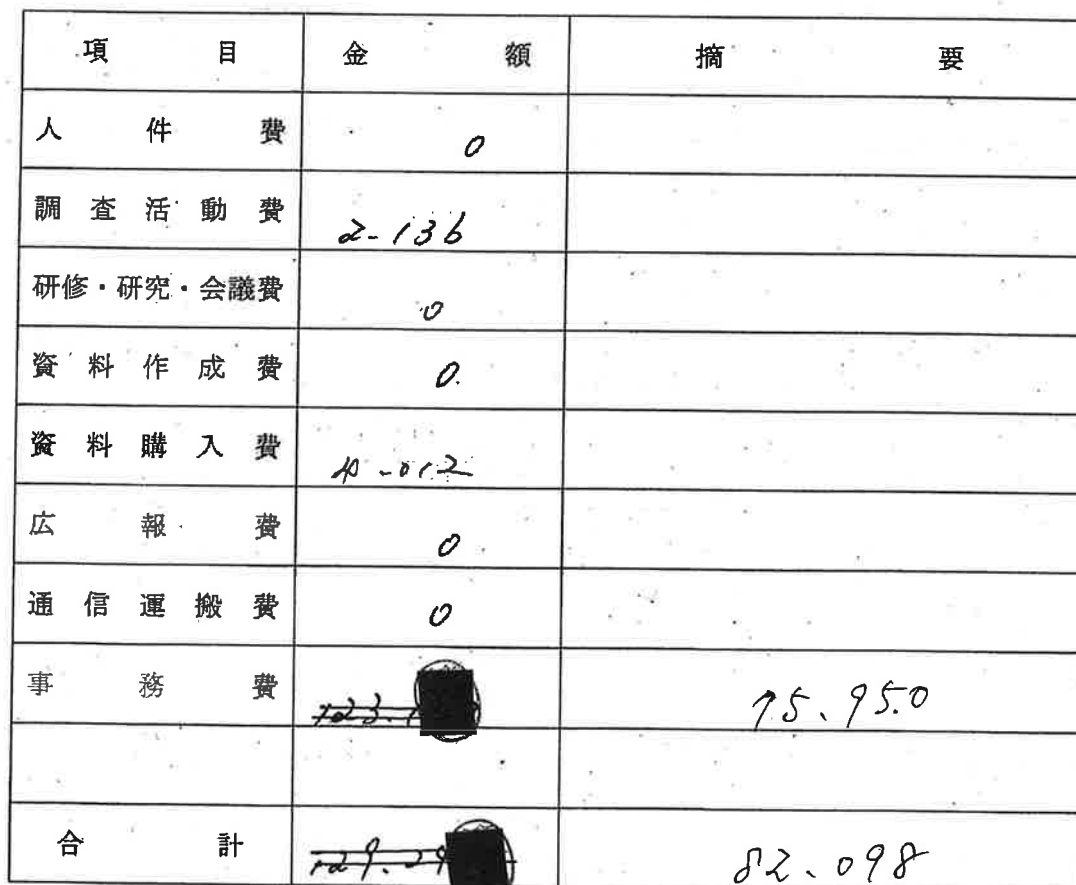 項目 金額 摘要
人件費 0
調査活動費 2-136
研修・研究・会議費 0
資料作成費 0.
資料購入費 4-012
広報費 0
通信運搬費 0
事務費 123.1 75、950
合計 129.29 82、098